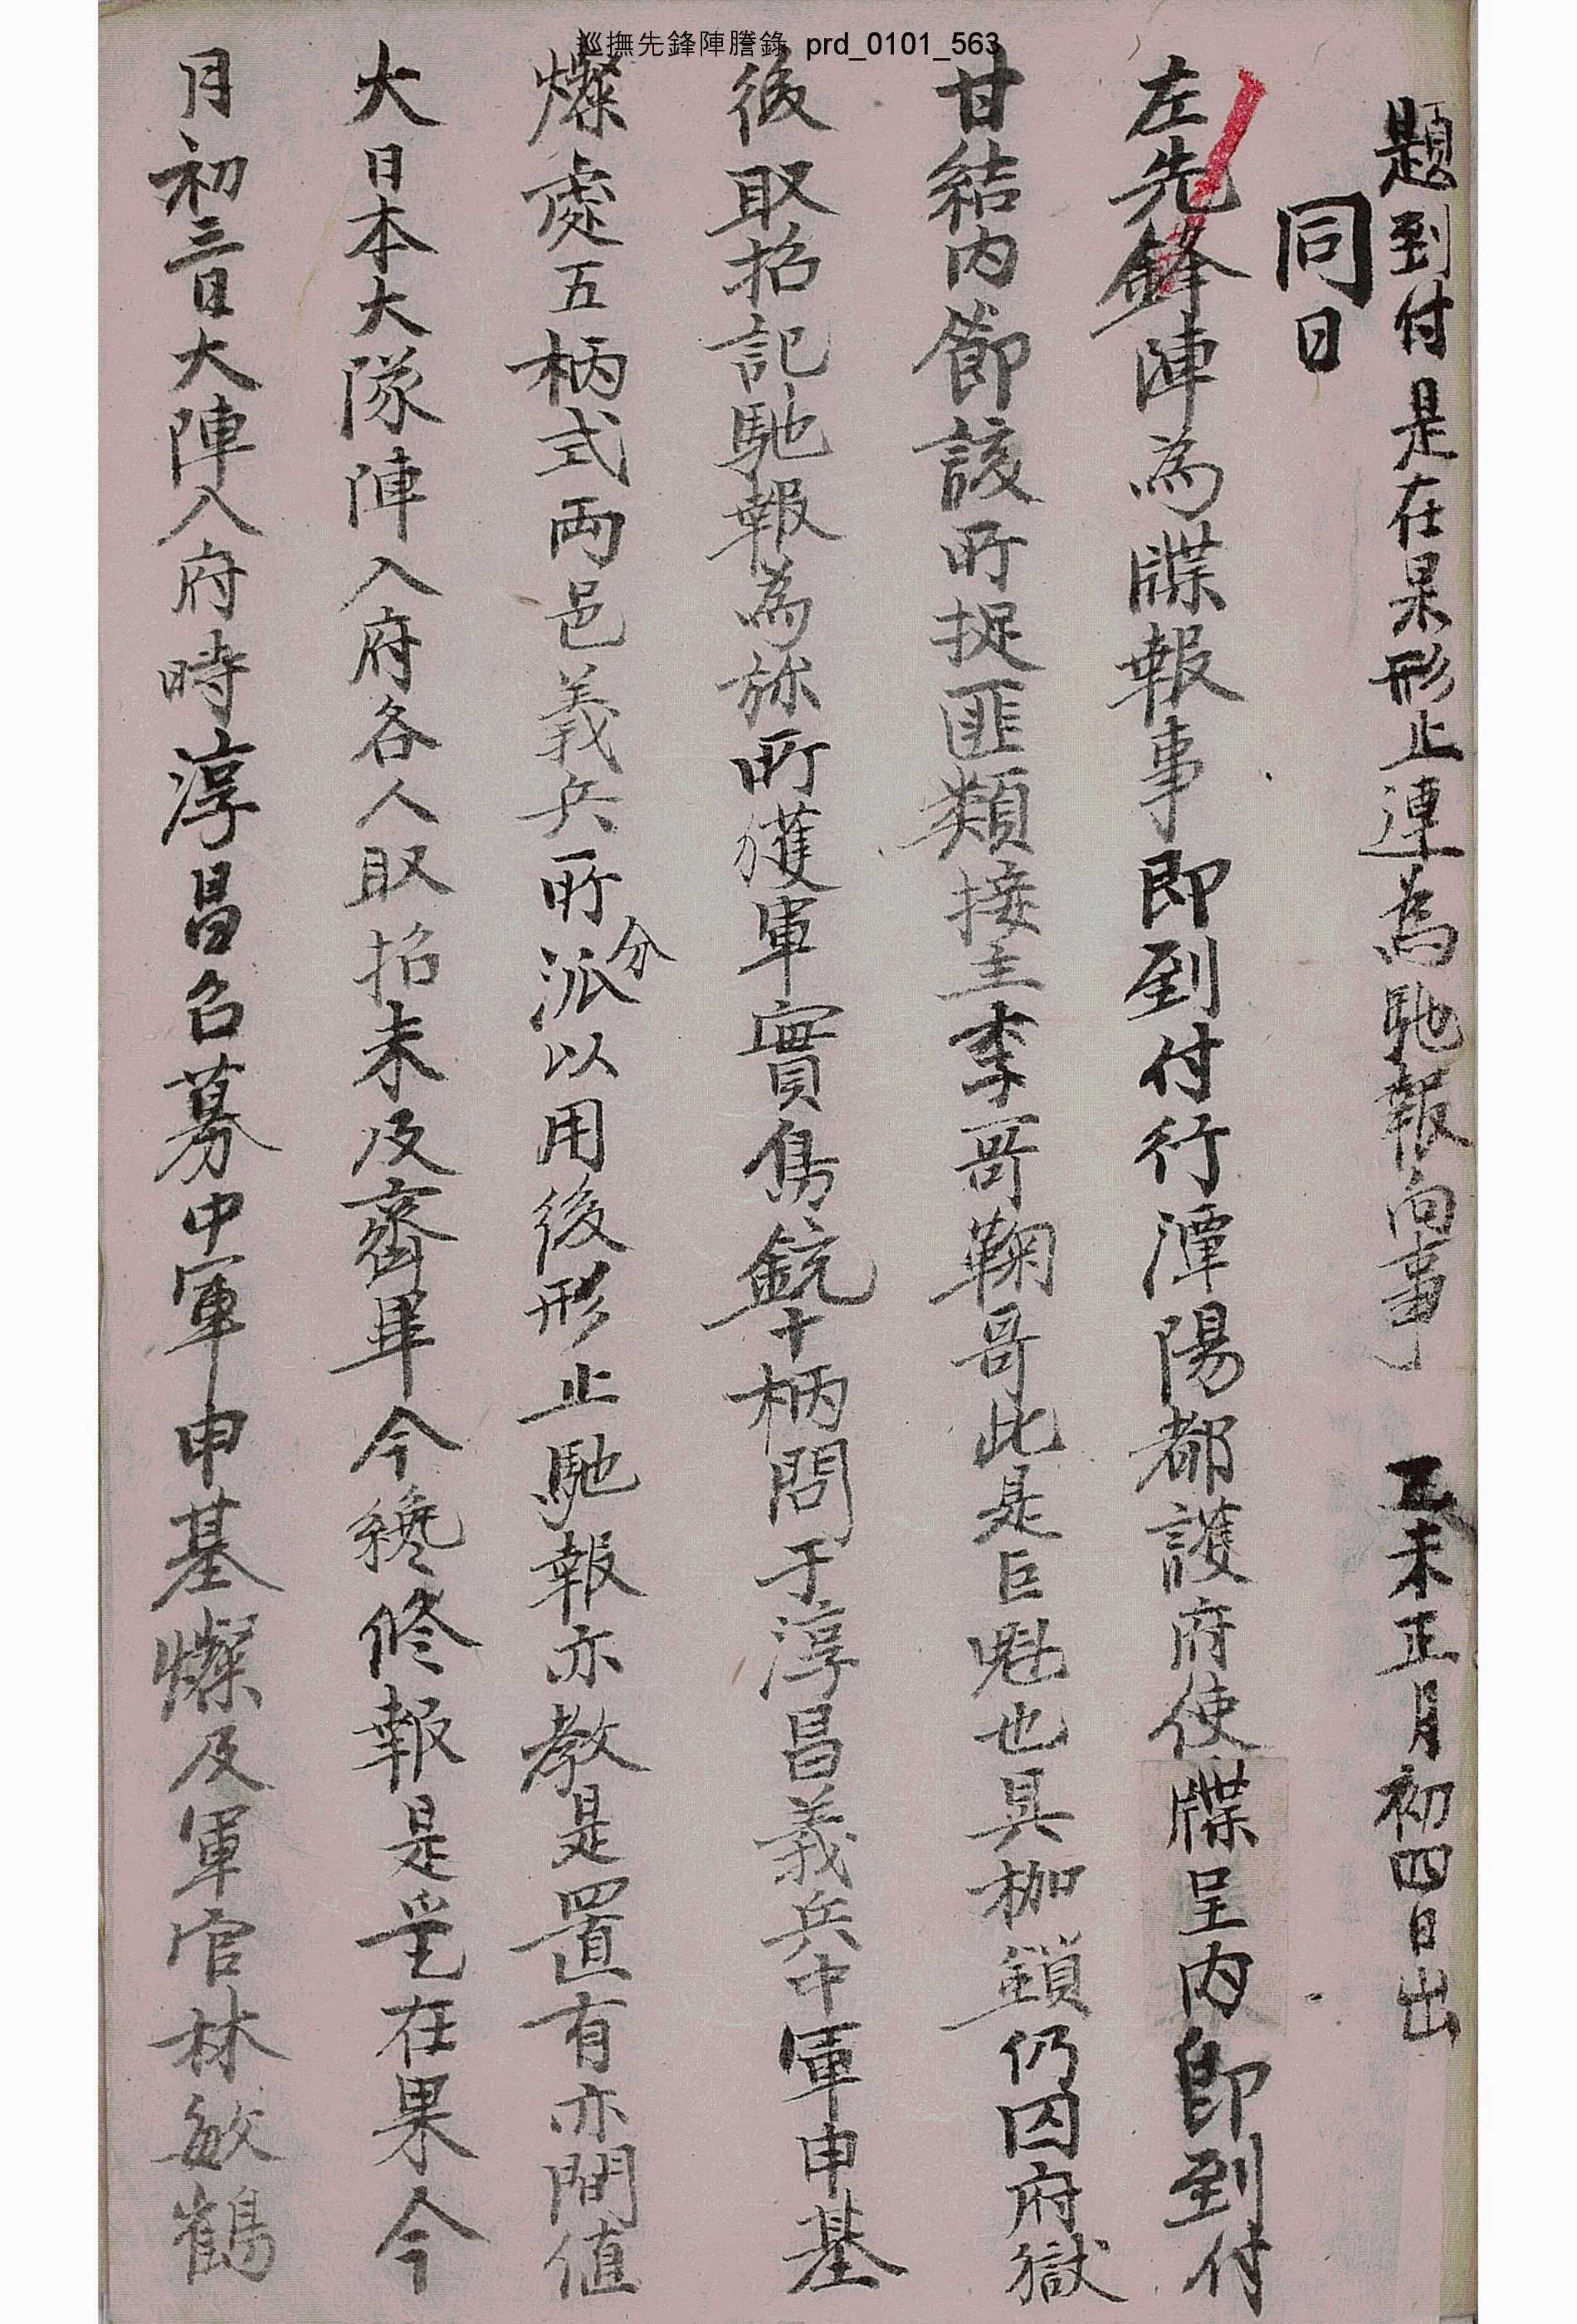 巡撫先鋒陣謄錄 prd_0101_563
題到付是在果形止連為馳報向事 乙未正月初四日出
同日
左先鋒陣為牒報事即到付行潭陽都護府使牒呈内即到付
甘結内節該所捉匪類接主李哥鞠哥此是巨魁也具枷鎖仍囚府獄
後取招記馳報為旀所獲軍實鳥銃十柄問于淳昌義兵中軍申基
燦處五柄式両邑義兵所分派以用後形止馳報亦教是置有亦間値
大日本大隊陣入府各人取招未及齊畢今纔修報是乎在果今
月初三日大陣入府時淳昌召募中軍申基燦及軍官林敏鶴